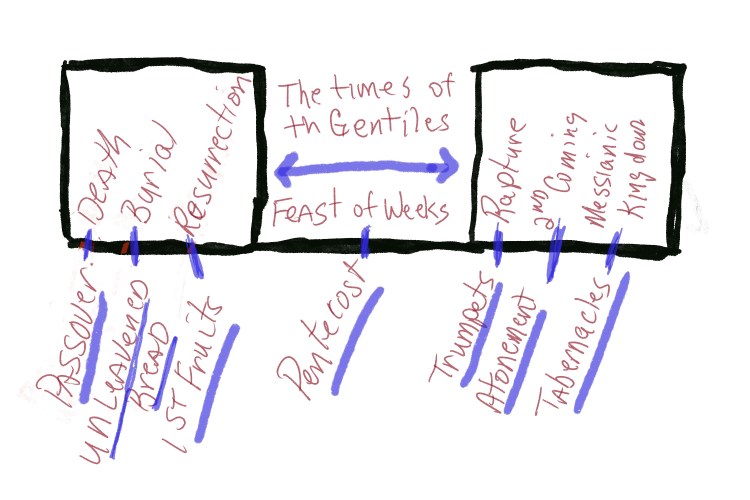 Death
Burial
Resurrection
The times of
th Gentiles
Feast of Weeks
Rapture
2ND Coming
Messianic
Kingdom
PASSOVER
UNLEAVENED
BREAD
1ST Fruits
Pentecost
Trumpets
Atonement
TAbernacles